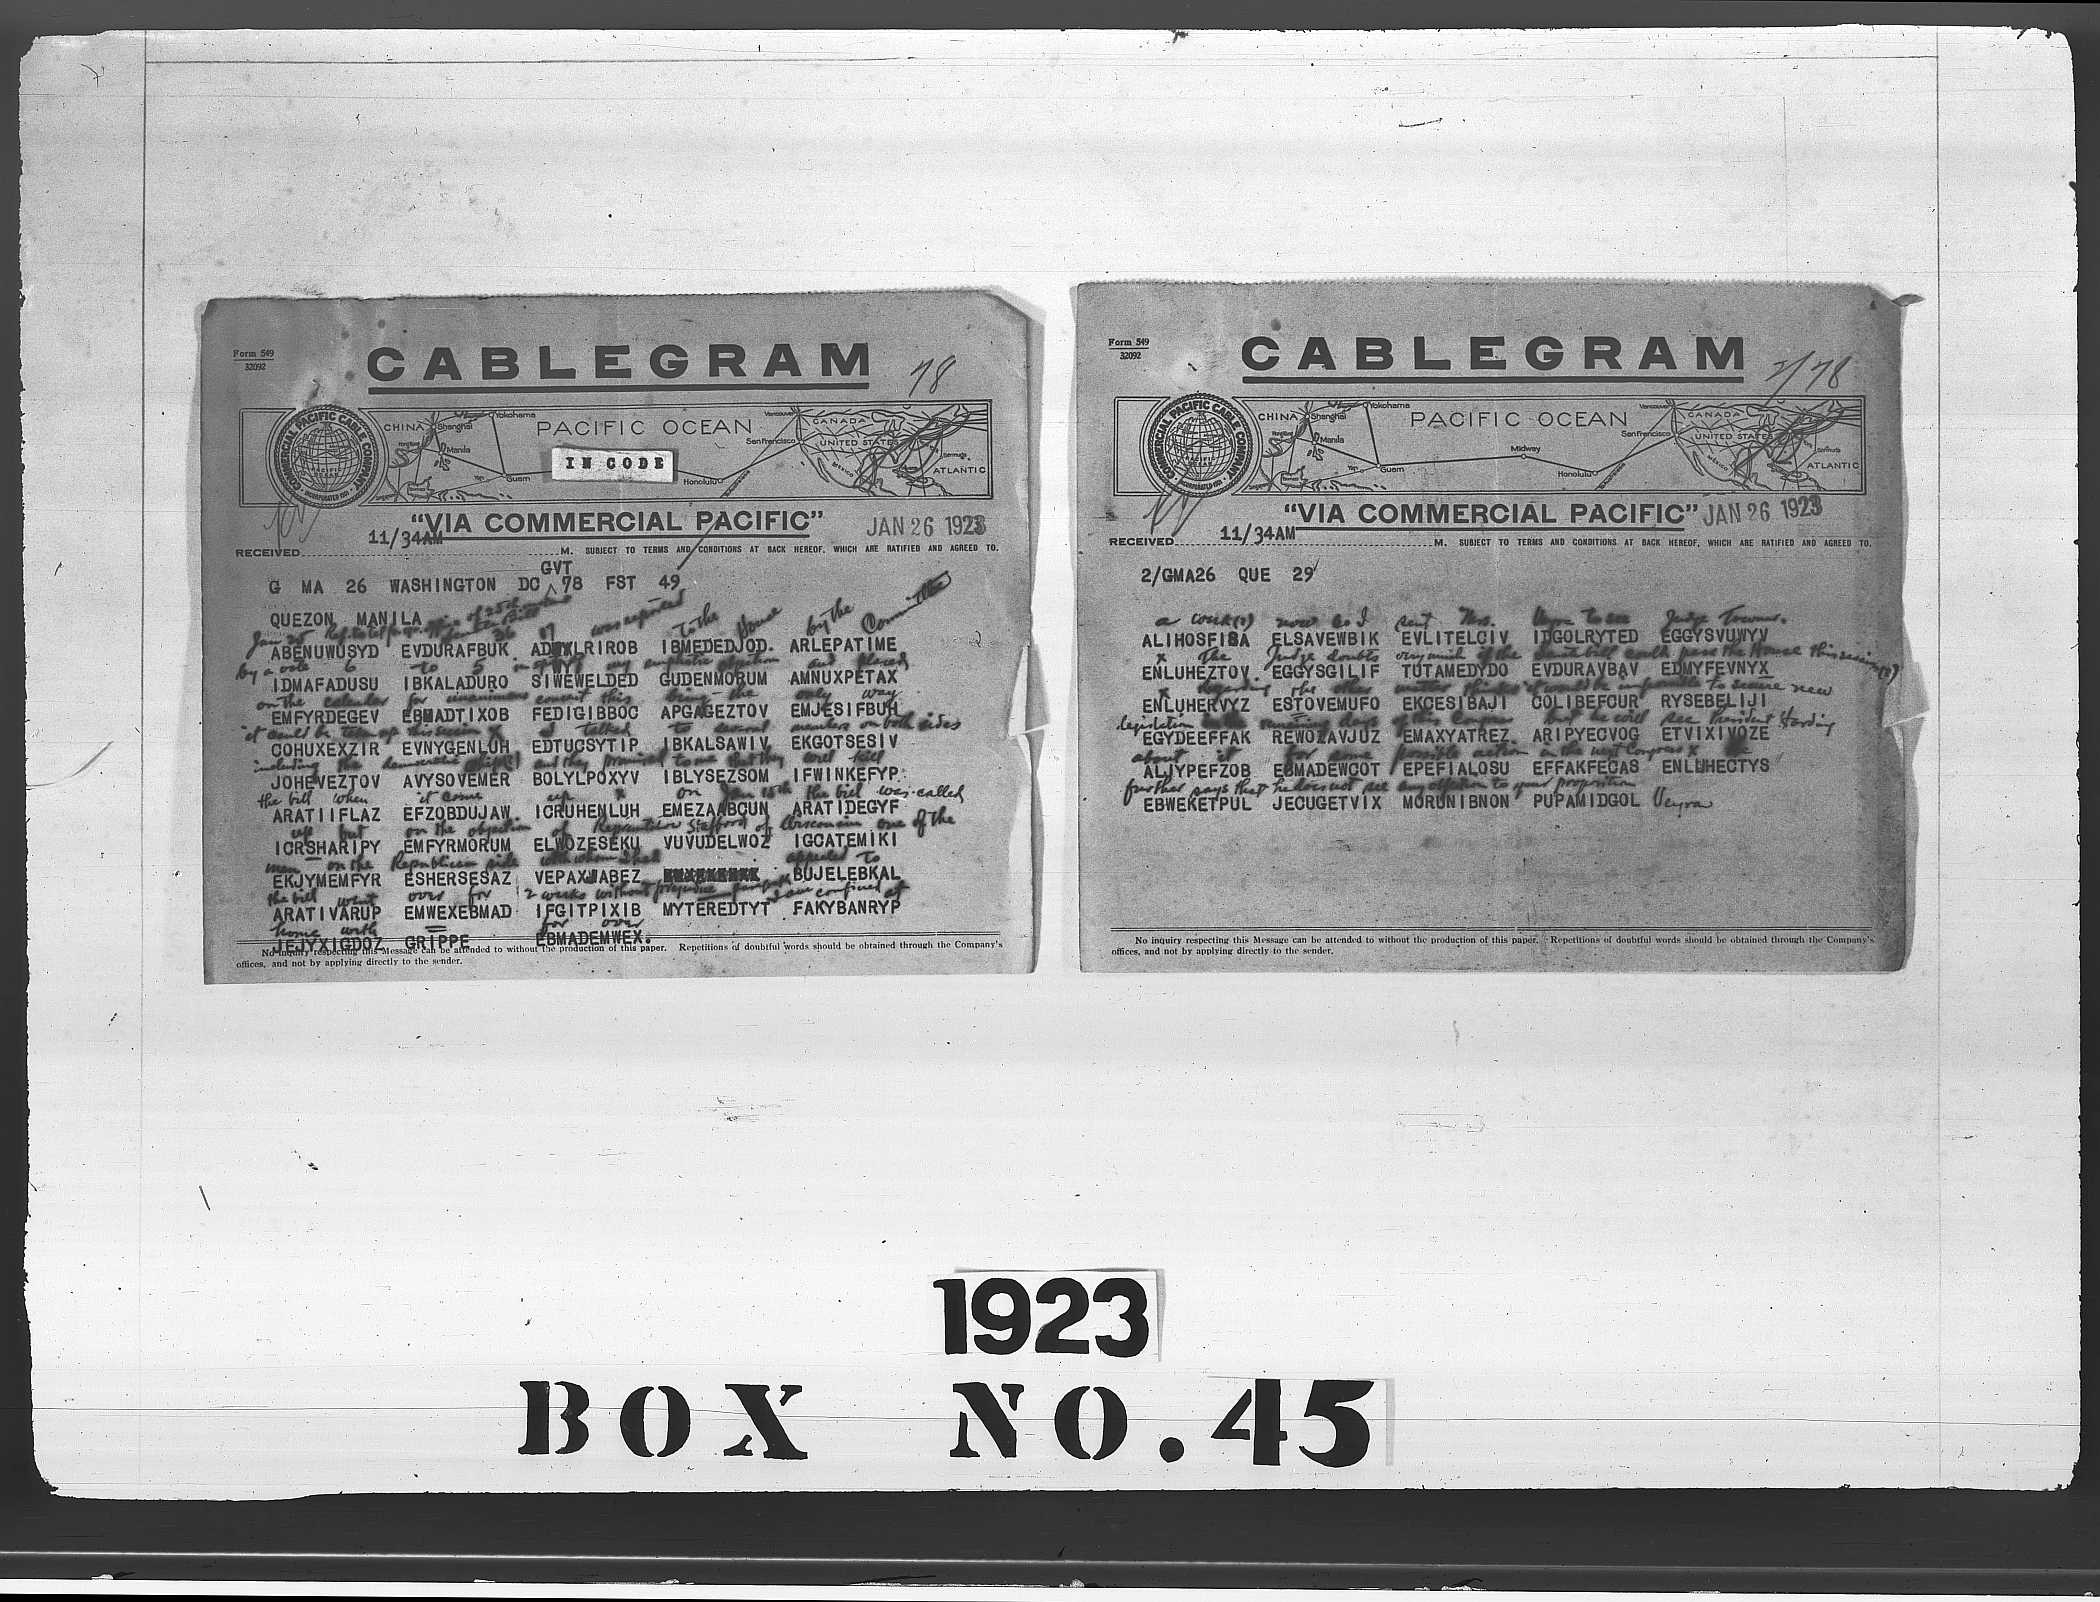 Form 549
32092
CABLEGRAM
78
COMMERCIAL PACIFIC CABLE COMPANY
INCORPORATED 1901
CHINA Shanghai Yokohama PACIFIC OCEAN Vancouver CANADA
Manila San Francisco UNITED STATES
IN CODE
Guam Honolulu MEXICO Bermuda ATLANTIC
"VIA COMMERCIAL PACIFIC" JAN 26 1923
RECEIVED 11/34AM M. SUBJECT TO TERMS AND CONDITIONS AT BACK HEREOF, WHICH ARE RATIFIED AND AGREED TO.
GVT
G MA 26 WASHINGTON DC 78 FST 49
QUEZON MANILA
Jan 25 was reported to the House by the Committee
ABENUWUSYD EVDURAFBUK RIROB IBMEDEDJOD. ARLEPATIME
by a vote 6 to 5 my emphatic objection and placed
IDMAFADUSU IBKALADURO SIWEWELDED GUDENMORUM AMNUXPETAX
on the calendar for unanimous consent this being the only way
EMFYRDEGEV EBMADTIXOB FEDIGIBBOC APGAGEZTOV EMJESIFBUH
it could be taken up this session x I talked to several members on both sides
COHUXEXZIR EVNYGENLUH EDTUCSYTIP IBKALSAWIV EKGOTSESIV
including the democratic and they promised to me that they will kill
JOHEVEZTOV AVYSOVEMER BOLYLPOXYV IBLYSEZSOM IFWINKEFYP
the bill when it come up x on Jan 15th the bill was called
ARATIIFLAZ EFZOBDUJAW ICRUHENLUH EMEZAABCUN ARATIDEGYF
up but on the objection of Stafford of Wisconsin one of the
ICRSHARIPY EMFYRMORUM ELWOZESEKU VUVUDELWOZ IGCATEMIKI
men on the Republican side with whom I had appealed to
EKJYMEMFYR ESHERSESAZ VEPAXJABEZ BUJELEBKAL
the bill went over for 2 weeks without prejudice I am confined at
ARATIVARUP EMWEXEBMAD IFGITPIXIB MYTEREDTYT FAKYBANRYP
home with for over
JEJYXIGDOZ GRIPPE EBMADEMWEX.
No inquiry respecting this Message can be attended to without the production of this paper. Repetitions of doubtful words should be obtained through the Company's
offices, and not by applying directly to the sender.
Form 549
32092
CABLEGRAM
2/78
COMMERCIAL PACIFIC CABLE COMPANY
INCORPORATED 1901
CHINA Shanghai Yokohama PACIFIC OCEAN Vancouver CANADA
Manila Midway San Francisco UNITED STATES
Yap Guam Honolulu MEXICO Bermuda ATLANTIC
"VIA COMMERCIAL PACIFIC" JAN 26 1923
RECEIVED 11/34AM M. SUBJECT TO TERMS AND CONDITIONS AT BACK HEREOF, WHICH ARE RATIFIED AND AGREED TO.
2/GMA26 QUE 29
a week(?) now so I sent Mrs. Veyra to see Judge Towner.
ALIHOSFISA ELSAVEWBIK EVLITELCIV IDGOLRYTED EGGYSVUWYV
x The Judge doubts very much if the bill could pass the House this session(?)
ENLUHEZTOV EGGYSGILIF TUTAMEDYDO EVDURAVBAV EDMYFEVNYX
x Regarding the other matter it would be impossible to secure new
ENLUHERVYZ ESTOVEMUFO EKCESIBAJI COLIBEFCUR RYSEBELIJI
legislation remaining days of this Congress but he will see President Harding
EGYDEEFFAK REWOZAVJUZ EMAXYATREZ ARIPYECVOG ETVIXIVOZE
about it for some possible action in the next Congress x He
ALJYPEFZOB EBMADEWCOT EPEFIALOSU EFFAKFECAS ENLUHECTYS
further says that he does not see any objection to your proposition
EBWEKETPUL JECUGETVIX MORUNIBNON PUPAMIDGOL Veyra
No inquiry respecting this Message can be attended to without the production of this paper. Repetitions of doubtful words should be obtained through the Company's
offices, and not by applying directly to the sender.
1923
BOX NO. 45